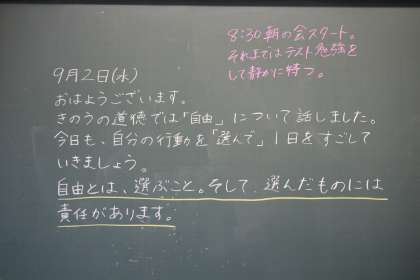 8:30朝の会スタート。
それまではテスト勉強を
して静かに待つ。
9月2日(水)
おはようございます。
きのうの道徳では「自由」について話しました。
今日も、自分の行動を「選んで」1日をすごして
いきましょう。
自由とは、選ぶこと。そして、選んだものには
責任があります。